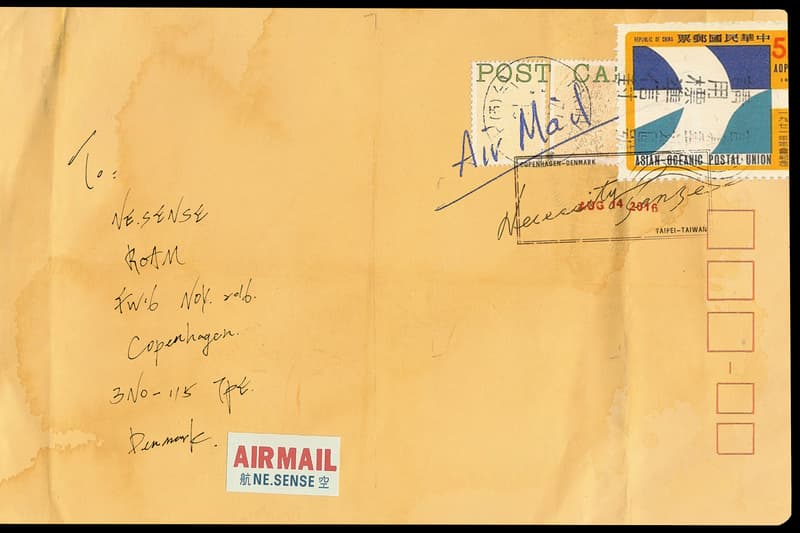 POST CA
REPUBLIC OF CHINA 票郵國民華中
5
AOP
ASIAN-OCEANIC POSTAL UNION
Air Mail
COPENHAGEN-DENMARK
AUG 04 2016
TAIPEI-TAIWAN
To:
NE.SENSE
ROAM
NOV. 2016.
Copenhagen.
3NO-115 TPE.
Denmark.
AIRMAIL
航 NE.SENSE 空